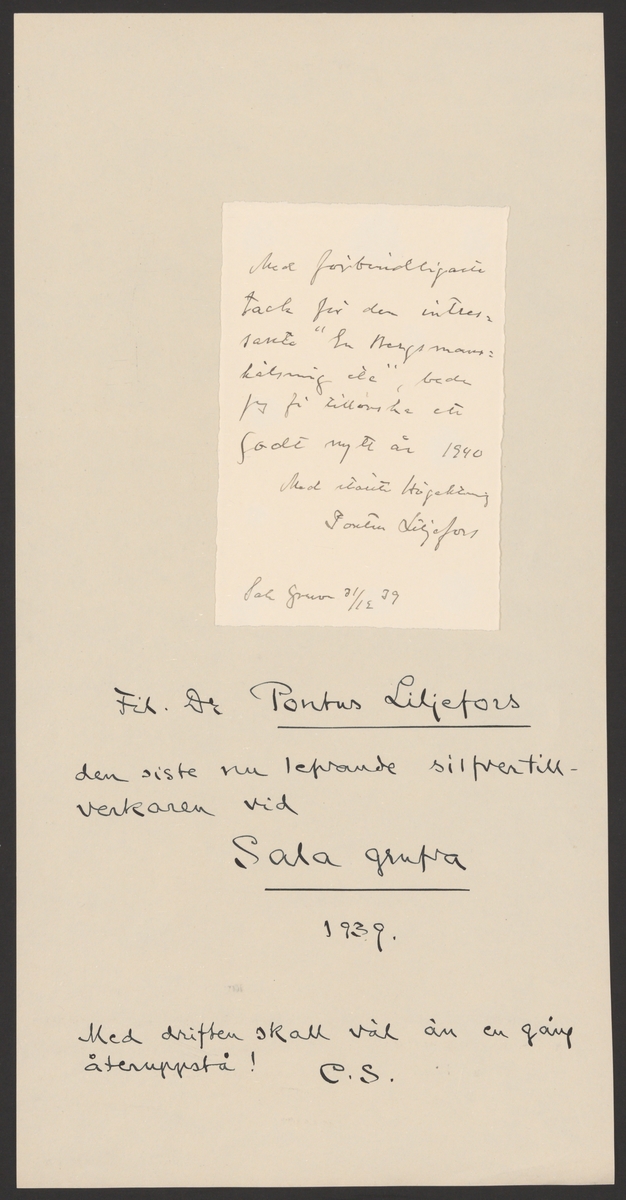 Med förbindligaste
tack för den intres=
santa "En Bergsmans=
hälsning etc", beder
jag få tillönska ett
godt nytt år 1940
Med största Högaktning
Pontus Liljefors
Sala Gruva 31/12 39
Fil. Dr Pontus Liljefors
den siste nu lefvande silfvertill-
verkaren vid
Sala grufva
1939.
Med driften skall väl än en gång
återuppstå!
C.S.